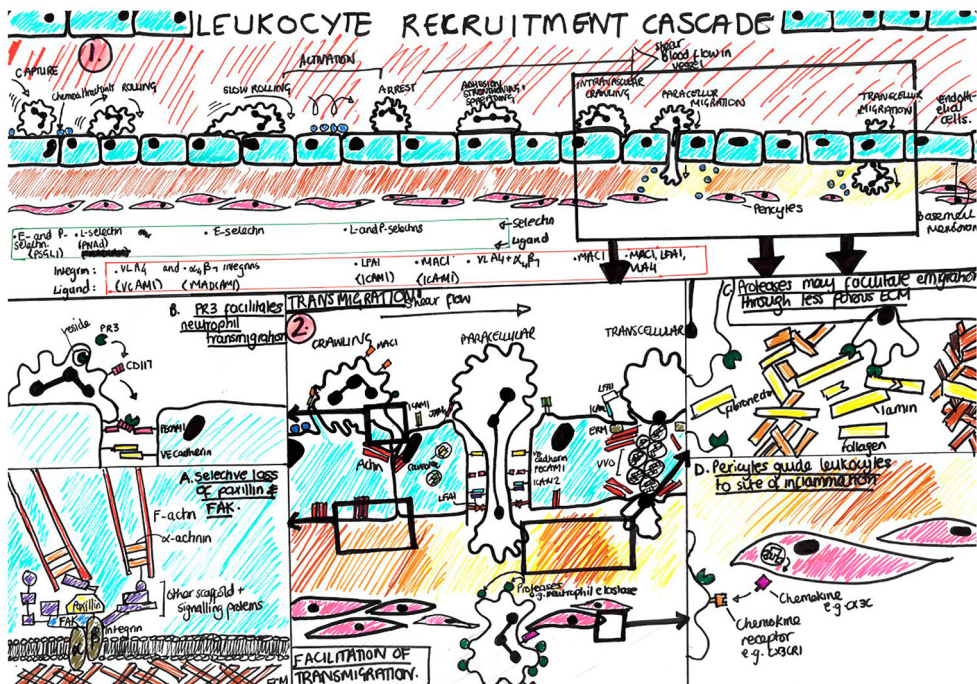 LEUKOCYTE RECRUITMENT CASCADE
1.
CAPTURE
ROLLING
SLOW ROLLING
ACTIVATION
ARREST
ADHESION
STRENGTHENING +
SPREADING
Shear
Blood flow in
vessel
INTRAVASCULAR
CRAWLING
PARACELLULAR
MIGRATION
TRANSCELLULAR
MIGRATION
Endoth-
elial
cells.
Pericytes
Basement
Membrane
• E- and P-
selectin.
(PSGL1)
• L-selectin
(PNAd)
• E-selectin
• L-and P-selectins
Selectin
Ligand
Integrin:
• VLA4 and • α4β7 integrins
• LFA1
• MAC1
• VLA4 + α4β7
• MAC1
• MAC1, LFA1,
VLA4
Ligand:
(VCAM1)
(MADCAM1)
(ICAM1)
(ICAM1)
B. PR3 facilitates
neutrophil
transmigration
PR3
CD117
PECAM1
VE cadherin
A. Selective loss
of paxillin &
FAK.
F-actin
α-actinin
Paxillin
FAK
other scaffold +
signalling proteins
α
β
integrin
ECM
TRANSMIGRATION.
shear flow
2.
CRAWLING
MAC1
ICAM1
PARACELLULAR
TRANSCELLULAR
Actin
LFA1
VE
cadherin
PECAM1
ICAM2
LFA1
ICAM1
ERM
VVO
Proteases
e.g. neutrophil elastase
FACILITATION OF
TRANSMIGRATION.
C. Proteases may facilitate emigration
through less porous ECM
fibronectin
lamin
collagen
D. Pericytes guide leukocytes
to site of inflammation
Chemokine
e.g. CX3C
Chemokine
receptor
e.g. CX3CR1